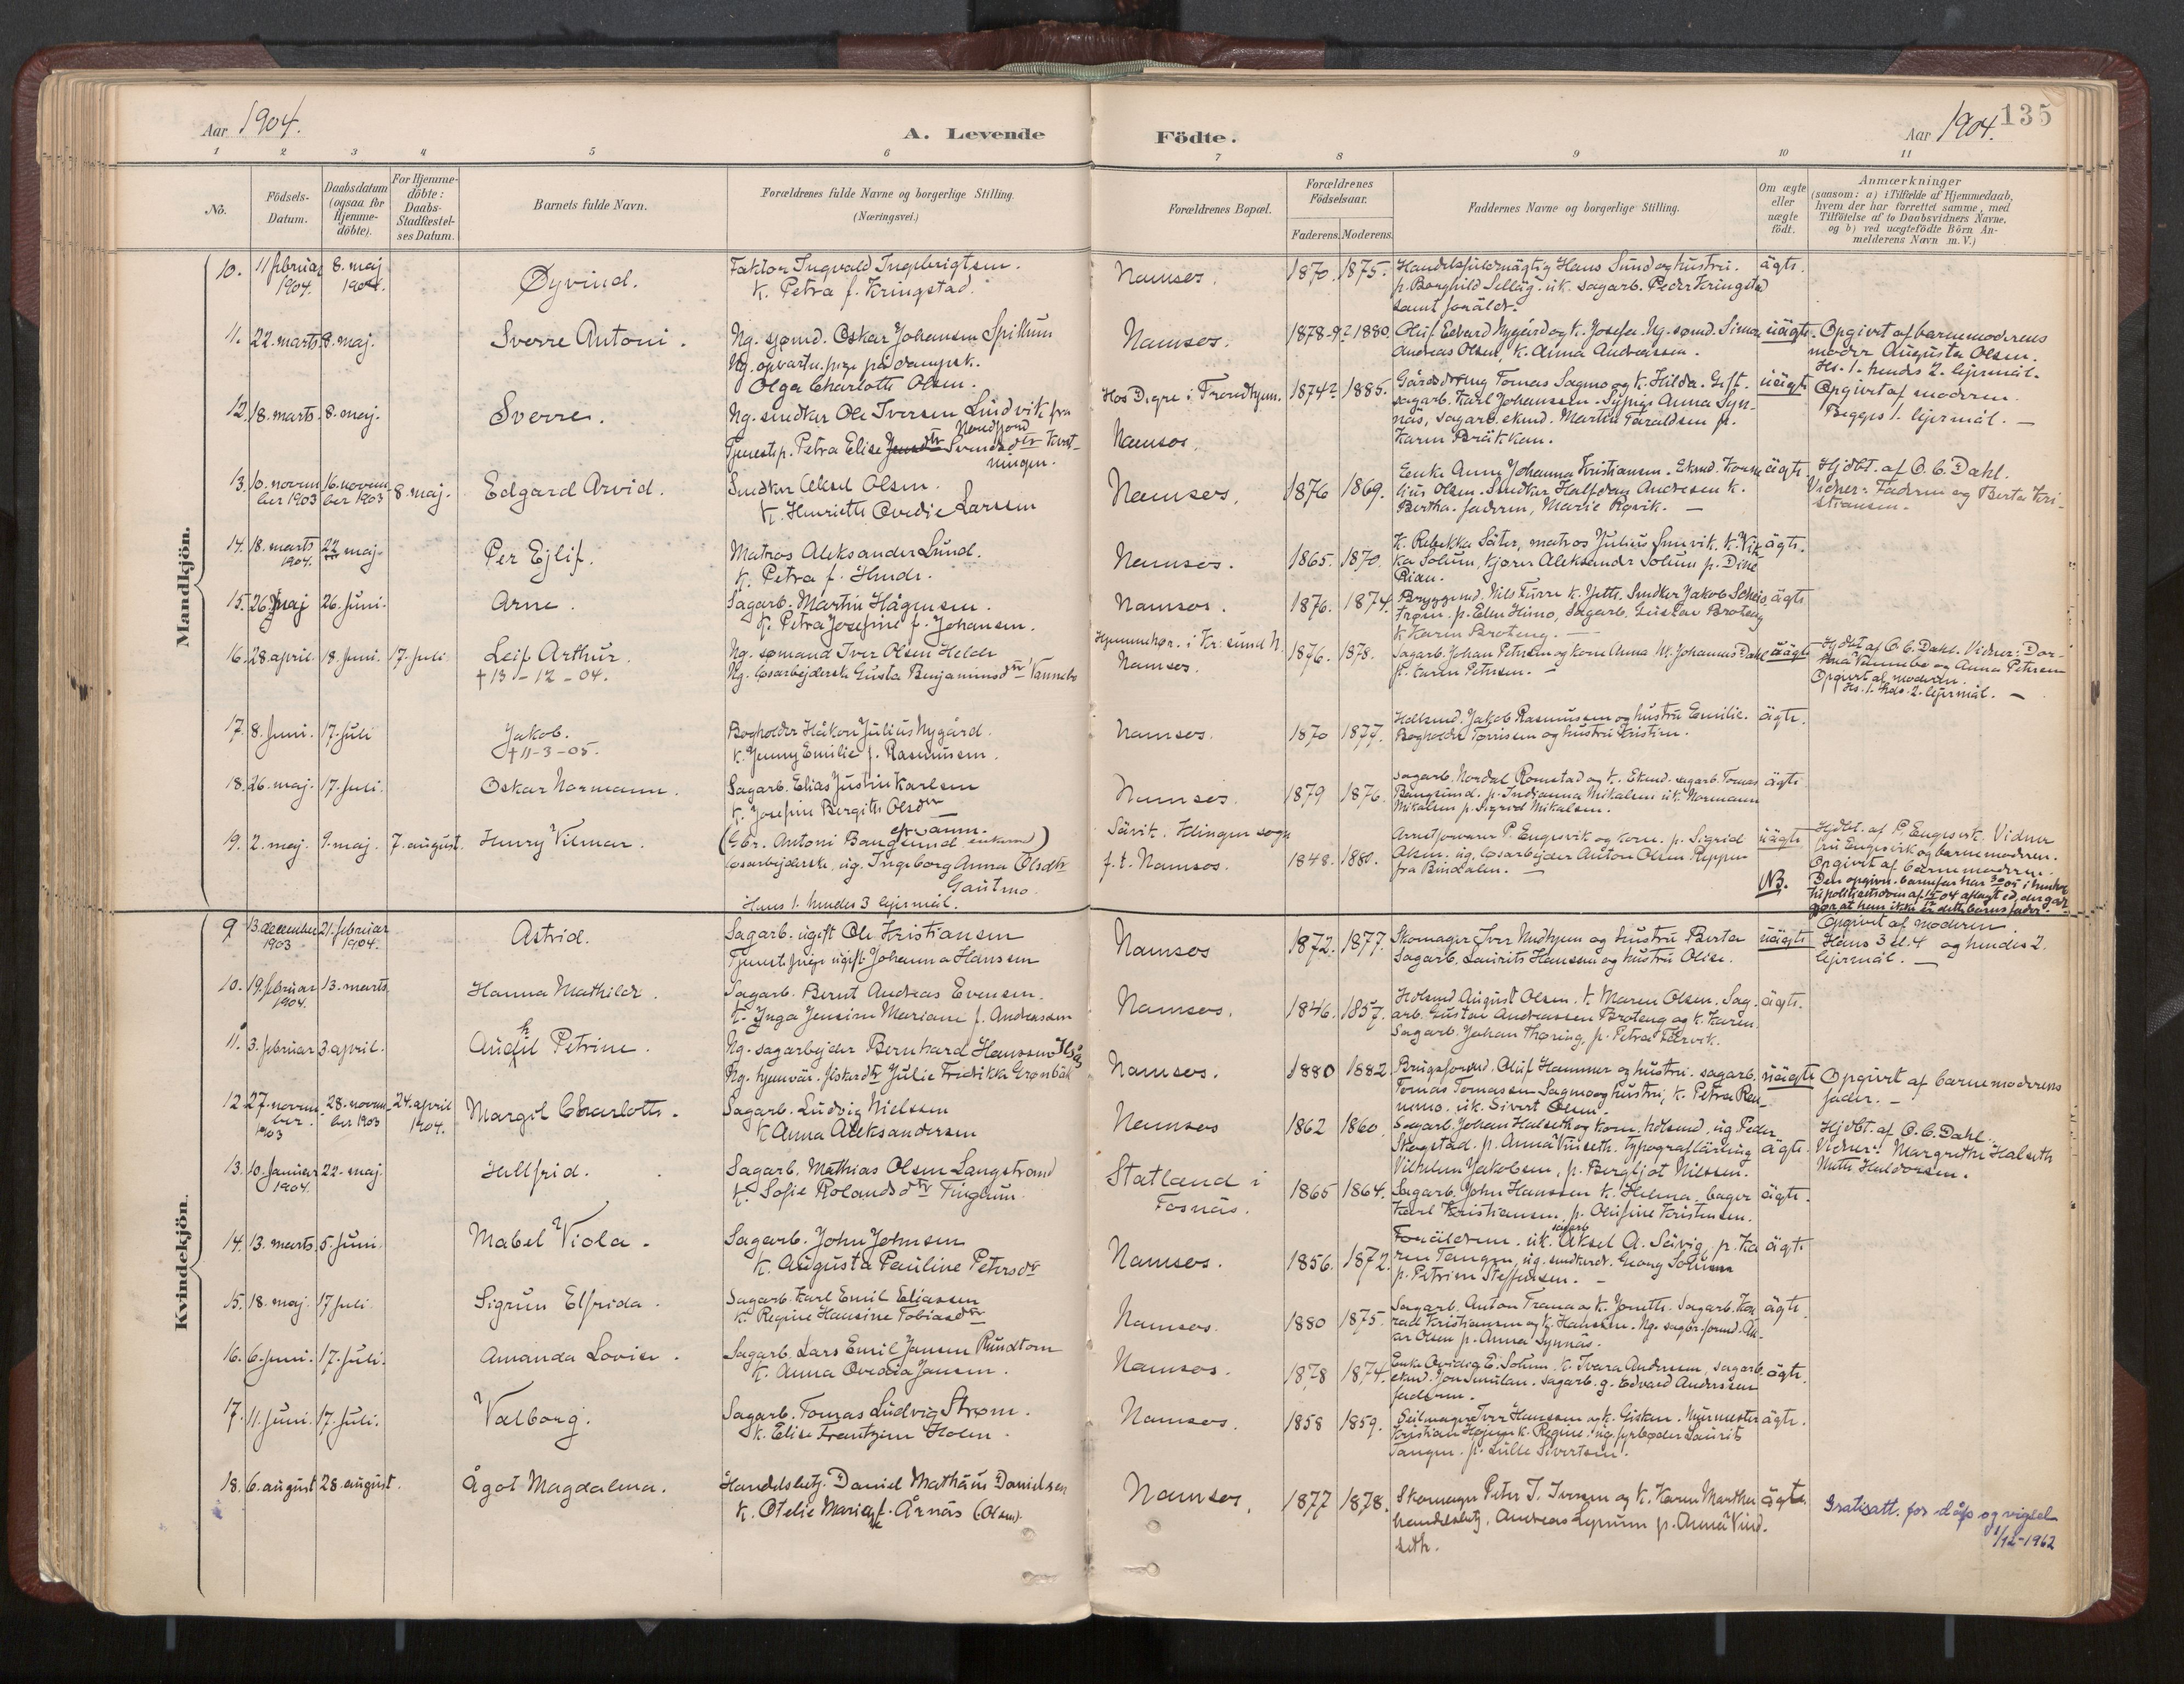 135
Aar 1904.
A. Levende Födte.
Aar 1904.
1 2 3 4 5 6 7 8 9 10 11
No.
Födsels-
Datum.
Daabsdatum
(ogsaa for
Hjemme-
döbte).
For Hjemme-
döbte:
Daabs-
Stadfæstel-
ses Datum.
Barnets fulde Navn.
Forældrenes fulde Navne og borgerlige Stilling.
(Næringsvei.)
Forældrenes Bopæl.
Forældrenes
Födselsaar.
Faderens. Moderens.
Faddernes Navne og borgerlige Stilling.
Om ægte
eller
uægte
födt.
Anmærkninger
(saasom: a) i Tilfælde af Hjemmedaab,
hvem der har forrettet samme, med
Tilföielse af to Daabsvidners Navne,
og b) ved uægtefödte Börn An-
melderens Navn m. V.)
Mandkjön.
10. 11 februar 1904. 8. maj 1904.
Øyvind.
Faktor Ingvald Ingebrigtsen.
K. Petra f. Kringstad.
Namsos. 1870. 1875.
Handelsfuldmägtig Hans Sund og hustru.
p. Borghild Selläg. uk. sagarb. Peder Kringstad
samt foräldr.
ägte.
11. 22. marts 8. maj.
Sverre Antoni.
Ug. sjømd. Oskar Johansen Spillum
Ug. opvartn.pige på dampsk.
Olga Charlotte Olsen.
Namsos. 1878-9? 1880.
Oluf Edvard Nygård og k. Josefa. Ug. sømd. Simon
Andreas Olsen, k. Anna Andreassen.
uägte.
Opgivet af barnemoderens
moder Augusta Olsen.
Hs. 1. hendes 2. lejermål.
12. 18. marts. 8. maj.
Sverre.
Ug. snedker Ole Iversen Lindvik fra
Nordfjord
Tjenestep. Petra Elise Svendsdtr Kvat-
ningen.
Hos Digre i Trondhjem.
Namsos.
1874? 1885.
Gårddreng Tomas Sagmo og k. Hilda. Gift.
sagarb. Karl Johanssen. Sypige Anna Syn-
näs, sagarb. ekmd. Martin Taraldsen p.
Karen Bräkkan.
uägte
Opgivet af moderen.
Begges 1. lejermål. —
13. 10. novem
ber 1903 16. novem
ber 1903 8. maj.
Edgard Arvid.
Snedker Aksel Olsen.
K. Henriette Ovedie Larssen
Namsos. 1876 1869.
Enke Anne Johanna Kristiansen. Ekmd. Korne
lius Olsen. Snedker Halfdan Andresen k.
Bertha. faderen, Marie Rørvik. —
ägte.
Hjdbt. af O. C. Dahl.
Vidner: Faderen og Berta Kri-
stiansen.
14. 18. marts 1904. 22 maj.
Per Ejlif.
Matros Aleksander Lund.
K. Petra f. Hund.
Namsos. 1865. 1870.
K. Rebekka Säter, matros Julius Smevik. k. Vik
ka Solum, kjører Aleksander Solum p. Dine
Rian.
ägte.
15. 26. maj 26. Juni.
Arne.
Sagarb. Martin Hågensen.
K. Petra Josefine f. Johansen.
Namsos. 1876. 1874.
Bryggemd. Nils Furre k. Jette. Snedker Jakob Scheis
trøen. p. Elen Himo, sagarb. Gustav Broteng
k. Karen Broteng. —
ägte
16. 28. april. 18. Juni. 17. Juli.
Leif Arthur.
† 13 - 12 - 04.
Ug. sømand Iver Olsen Helde
Ug. løsarbejderske Gusta Benjaminsdtr Vannebo
Hjemmehør. i Kr.sund N.
Namsos.
1876. 1878.
Sagarb. Johan Petersen og kone Anna M. Johannes Dahl
p. Karen Petersen. —
uägte
Hjdbt af O. C. Dahl. Vidner: Dor-
thea Vannebo og Anna Petersen
Opgivet af moderen.
Hs. 1. hds. 2. lejermål. —
17. 8. Juni. 17. Juli
Jakob.
† 11-3-05.
Bogholder Håkon Julius Nygård.
K. Jenny Emilie f. Rasmussen.
Namsos. 1870 1877.
Jakob Rasmussen og hustru Emilie.
Bogholder Torrissen og hustru Kristine.
ägte.
18. 26. maj. 17. Juli.
Oskar Normann.
Sagarb. Elias Justin Karlsen
K. Josefine Bergitte Olsdtr —
Namsos. 1879 1876.
Sagarb. Nordal Romstad og k. Ekmd. sagarb. Tomas
Bangsund. p. Indianna Mikalsen uk. Normann
Mikalsen p. Sigrid Mikalsen.
ägte
19. 2. maj. 9. maj. 7. august.
Henry Vilmar.
(Gbr. Antoni Bangsund enkem.)
Løsarbejderske, ug. Ingeborg Anna Olsdtr
Gautmo.
Hans 1. hendes 3 lejermål.
Sävik. Klingen sogn
f. t. Namsos.
1848. 1880.
Arrestforvarer P. Engesvik og kone. p. Sigrid
Olsen. ug. løsarbejder Anton Olsen Reppen
fra Bindalen. —
uägte
NB.
Hjdbt. af P. Engesvik. Vidner
fru Engesvik og barnemoderen.
Opgivet af barnemoderen.
Kvindekjön.
9 13. december
1903 21. februar
1904.
Astrid.
Sagarb. ugift Ole Kristiansen
Tjenestepige ugift Johanna Hanssen
Namsos 1872. 1877.
Skomager Iver Midhjem og hustru Berta
Sagarb. Laurits Hanssen og hustru Olise.
uägte
Opgivet af moderen
Hans 3 el. 4 og hendes 2.
lejermål. —
10. 19. februar
1904. 13. marts
Hanna Mathilde.
Sagarb. Bernt Andreas Evensen.
K. Inga Jensine Mariane f. Andreassen
Namsos. 1846. 1857.
Holsmd August Olsen. k. Maren Olsen. Sag-
arb. Gustav Andreassen Broteng og k. Karen.
Sagarb. Johan Thoring, p. Petra Tørvik.
ägte.
11. 3. februar 3. april.
Audhil Petrine.
Ug. sagarbejder Bernhard Hanssen Ilsås
Ug. hjemvär. fiskerdtr Julie Fredrikke Grønbäk
Namsos. 1880 1882
Brugsformd. Oluf Hammer og hustru. sagarb.
Tomas Tomassen Sagmo og hustru, k. Petra Ren-
nemo. uk. Sivert Olsen.
uägte
Opgivet af barnemoderens
fader. —
12. 27. novem
ber.
1903 28. novem
ber 1903 24. april
1904.
Margit Charlotte.
Sagarb. Ludvig Nielssen
K. Anna Aleksandersen
Namsos 1862 1860.
Sagarb. Johan Halseth og kone, holsmd, ug Peder
Skogstad. p. Anna Vinseth. typograflärling
Vilhelm Jakobsen, p. Bergljot Nilssen.
ägte.
Hjdbt. af O. C. Dahl.
Vidner: Margrethe Halseth
Mette Haldorsen.
13. 10. januar
1904. 22. maj.
Hallfrid.
Sagarb. Mathias Olsen Langstrand
K. Sofie Rolandsdtr Finganm.
Statland i
Fosnäs.
1865 1864.
Sagarb. John Hanssen k. Helma. bager
Karl Kristiansen, p. Olufine Kristensen.
ägte.
14. 13. marts. 5. Juni
Mabel Viola.
Sagarb. John Johnsen
K. Augusta Pauline Petersdtr
Namsos. 1856. 1872.
Foräldrene. uk. sagarb. Aksel A. Sävig, p. Ka
ren Tangen, ug. snedkerdr. Georg Solum
p. Petrine Steffensen. —
ägte
15. 18. maj. 17 Juli
Sigrun Elfrida.
Sagarb. Karl Emil Eliassen
K. Regine Hansine Tobiasdtr
Namsos. 1880 1875.
Sagarb. Anton Trana og k. Jonette. Sagarb. Kon
rad Kristiansen og k. Hansine. Ug. sagbr.formd. Ein-
ar Olsen p. Anna Synnäs.
ägte
16. 6. Juni. 17. Juli.
Amanda Lovise.
Sagarb. Lars Emil Jansen Rundtom
K. Anna Ovedia Jansen.
Namsos. 1878 1874.
Enke Ovidia E. Solum. k. Ivara Andressen, sagarb.
ekmd. Jon Smulan. sagarb. g. Edvard Andressen
faderen.
ägte.
17. 11. Juni. 17. Juli.
Valborg.
Sagarb. Tomas Ludvig Strøm.
K. Elise Frentzine Holen.
Namsos. 1858 1859.
Seilmager Iver Hanssen og k. Gisken. Murmester
Kristian Højem k. Regine. ug. fyrbøder Laurits
Tangen. p. Lulle Sivertsen.
ägte.
18. 6. august 28. august.
Ågot Magdalena.
Handelsbetj. Daniel Mathäus Danielsen
K. Otelie Marie f. Årnäs (Olsen).
Namsos. 1877 1878.
Skomager Peter J. Iversen og k. Karen Marthea
handelsbetj. Andreas Lyrum p. Anna Vind-
seth.
ägte
Gratisatt. for dåp og vigsel
1/12-1962